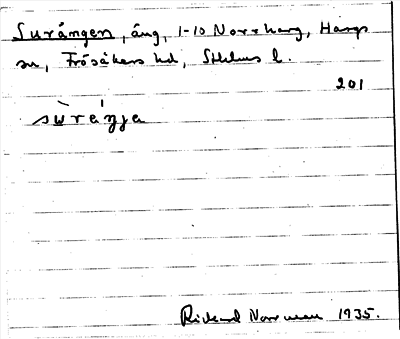 Surängen, äng, 1-10 Norrharg, Hargs
sn, Frösåkers hd, Sthlms l.
201
sùrǽŋja
Rickard Norrman 1935.